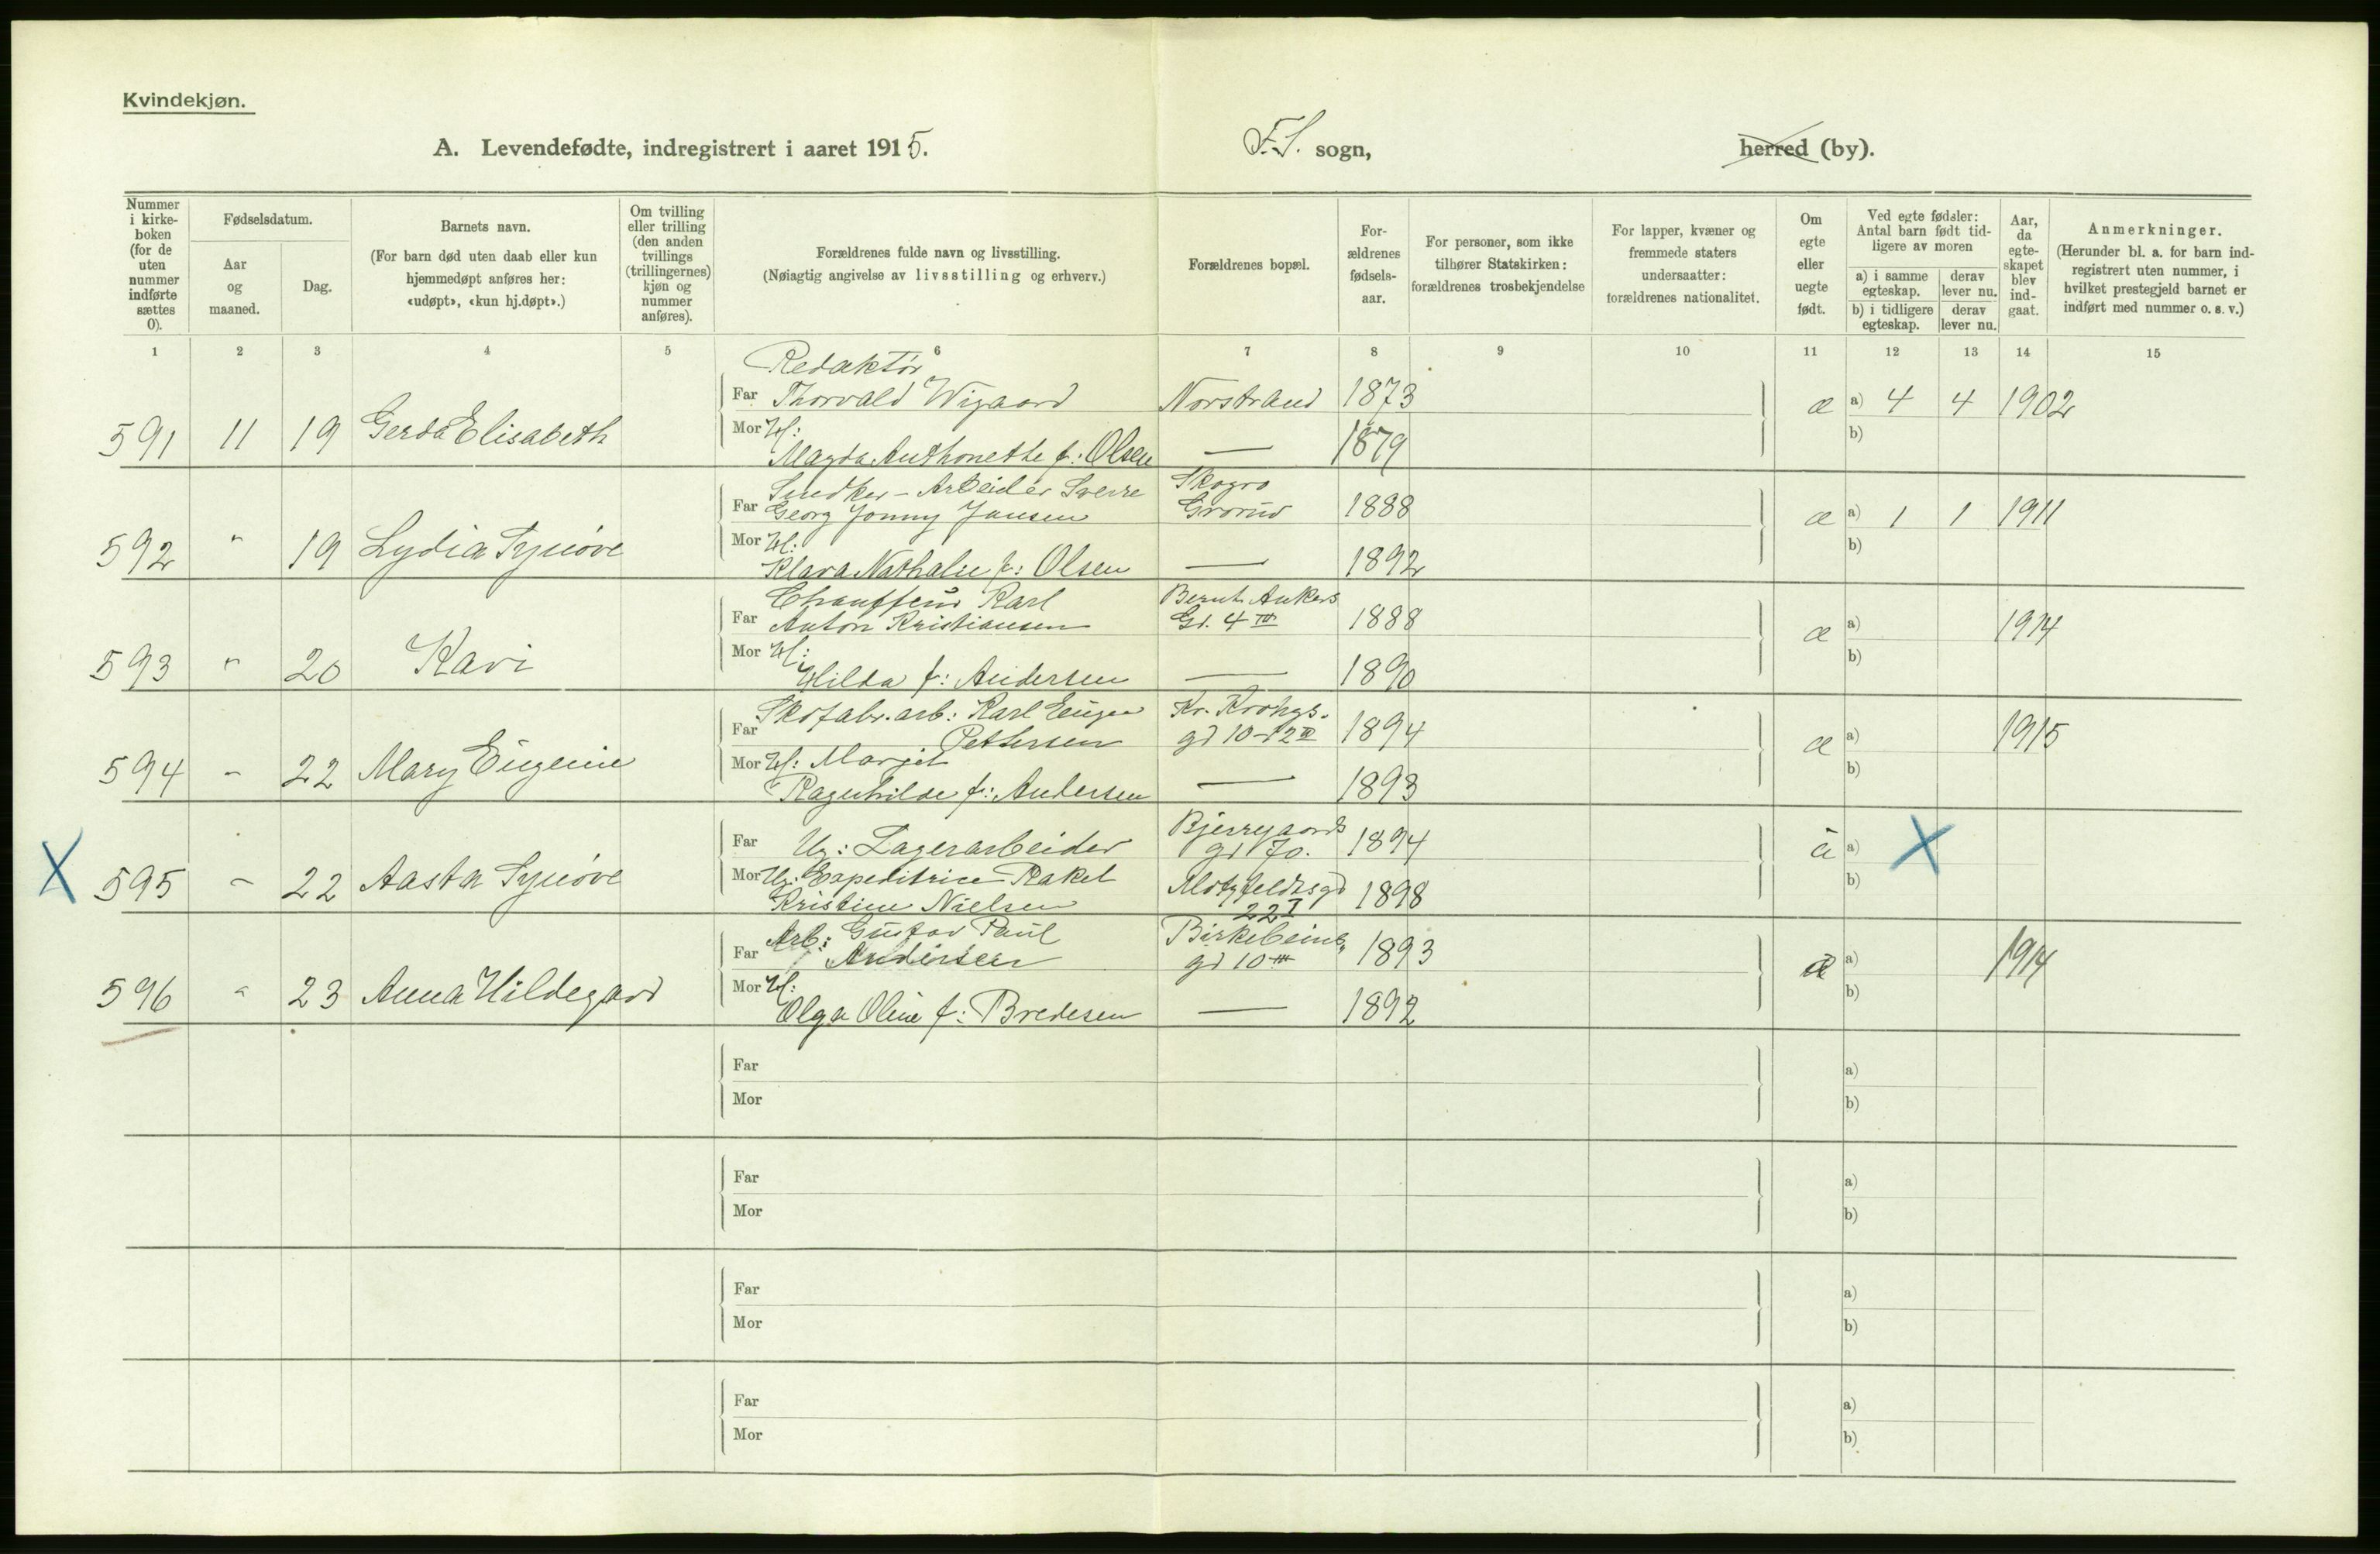 Kvindekjøn.
A. Levendefødte, indregistrert i aaret 1915.
F.S. sogn,
herred (by).
Nummer i kirke-boken (for de uten nummer indførte sættes 0).
Fødselsdatum.
Aar og maaned.
Dag.
Barnets navn.
(For barn død uten daab eller kun hjemmedøpt anføres her: «udøpt», «kun hj.døpt».)
Om tvilling eller trilling (den anden tvillings (trillingernes) kjøn og nummer anføres).
Forældrenes fulde navn og livsstilling.
(Nøiagtig angivelse av livsstilling og erhverv.)
Forældrenes bopæl.
For-ældrenes fødsels-aar.
For personer, som ikke tilhører Statskirken: forældrenes trosbekjendelse
For lapper, kvæner og fremmede staters undersaatter: forældrenes nationalitet.
Om egte eller uegte født.
Ved egte fødsler: Antal barn født tid-ligere av moren
a) i samme egteskap.
derav lever nu.
b) i tidligere egteskap.
derav lever nu.
Aar, da egte-skapet blev ind-gaat.
Anmerkninger.
(Herunder bl. a. for barn ind-registrert uten nummer, i hvilket prestegjeld barnet er indført med nummer o. s. v.)
1 2 3 4 5 6 7 8 9 10 11 12 13 14 15
Redaktør
Far Thorvald Wigaard Norstrand 1873
æ a) 4 4 1902
591 11 19 Gerda Elisabeth
Mor H:
Magda Anthonette f: Olsen — 1879
b)
Snedker-Arbeider Sverre Skogro
Far Georg Jonny Jansen Grorud 1888
æ a) 1 1 1911
592 " 19 Lydia Synøve
Mor H:
Klara Nathalie f: Olsen — 1892
b)
Chauffeur Karl Bernt Ankers
Far Anton Kristiansen Gd. 4 III 1888
æ a) 1914
593 " 20 Kari
Mor H:
Hilda f: Andersen — 1890
b)
Skofabr. arb: Karl Eugen Kr. Krohgs.
Far Pettersen gd 10-12 III 1894
æ a) 1915
594 - 22 Mary Eugenie
Mor H: Marjit
Ragnhilde f: Andersen — 1893
b)
Bjerregaards
Far Ug: Lagerarbeider gd 70. 1894
a) X
X 595 - 22 Aasta Synøve
Mor Ug: Expeditrice Rakel Motzfeldtsgd 1898
Kristine Nielsen 22 I
b)
Arb: Gustav Paul Birkebeiner
Far Andersen gd 10 III 1893
æ a) 1914
596 " 23 Anna Hildegard
Mor H:
Olga Oline f: Bredesen — 1892
b)
Far a)
Mor b)
Far a)
Mor b)
Far a)
Mor b)
Far a)
Mor b)